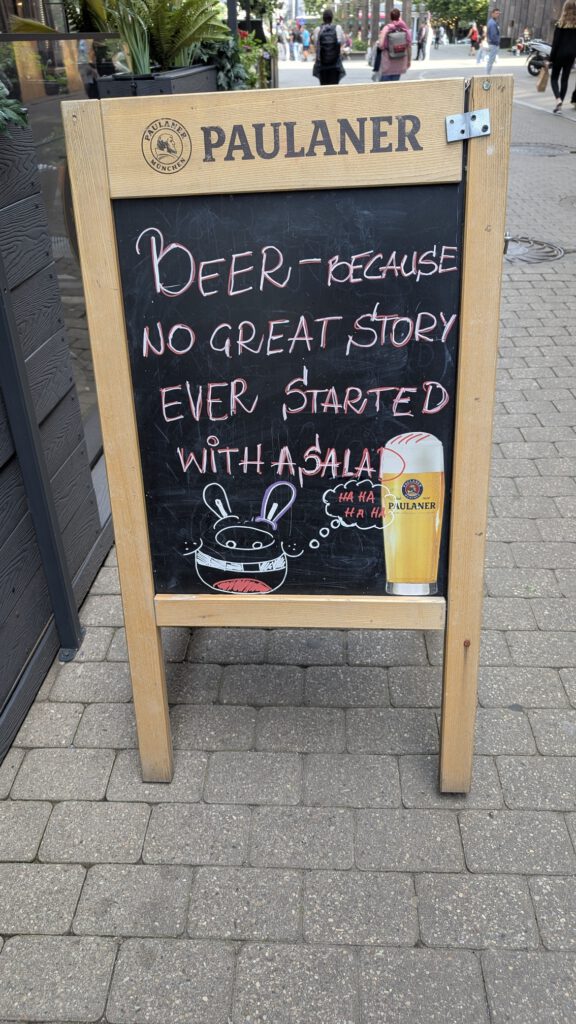 PAULANER
MÜNCHEN
PAULANER
BEER - BECAUSE
NO GREAT STORY
EVER STARTED
WITH A SALAD
HA HA
HA HA
PAULANER